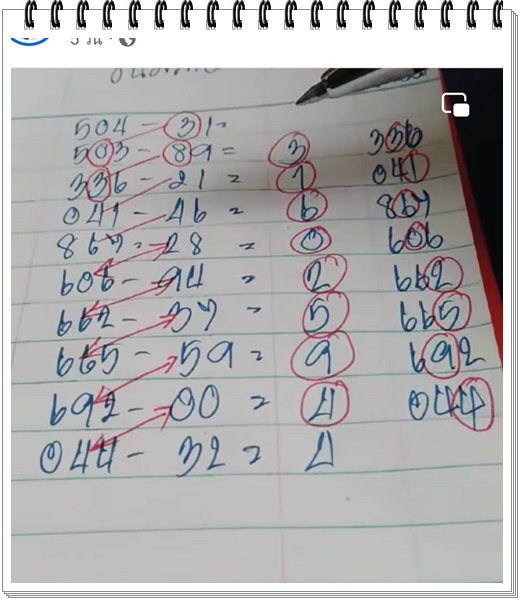 5 วัน ·
504 - 31 =
503 - 89 = 3 336
336 - 21 = 1 041
041 - 46 = 6 867
867 = 28 = 0 606
606 - 94 = 2 662
662 - 37 = 5 665
665 - 59 = 9 692
692 - 00 = 4 044
044 - 32 = 4